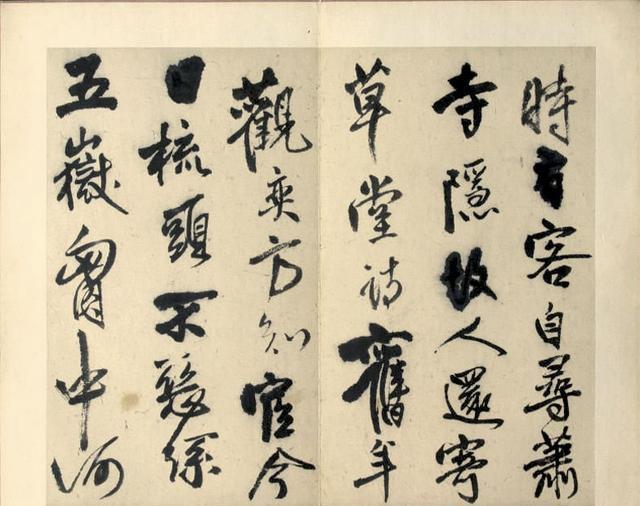 時有客自尋蕭
寺隱故人還寄
草堂詩舊年
觀奕方知宦今
日梳頭不絲
五嶽胷中何